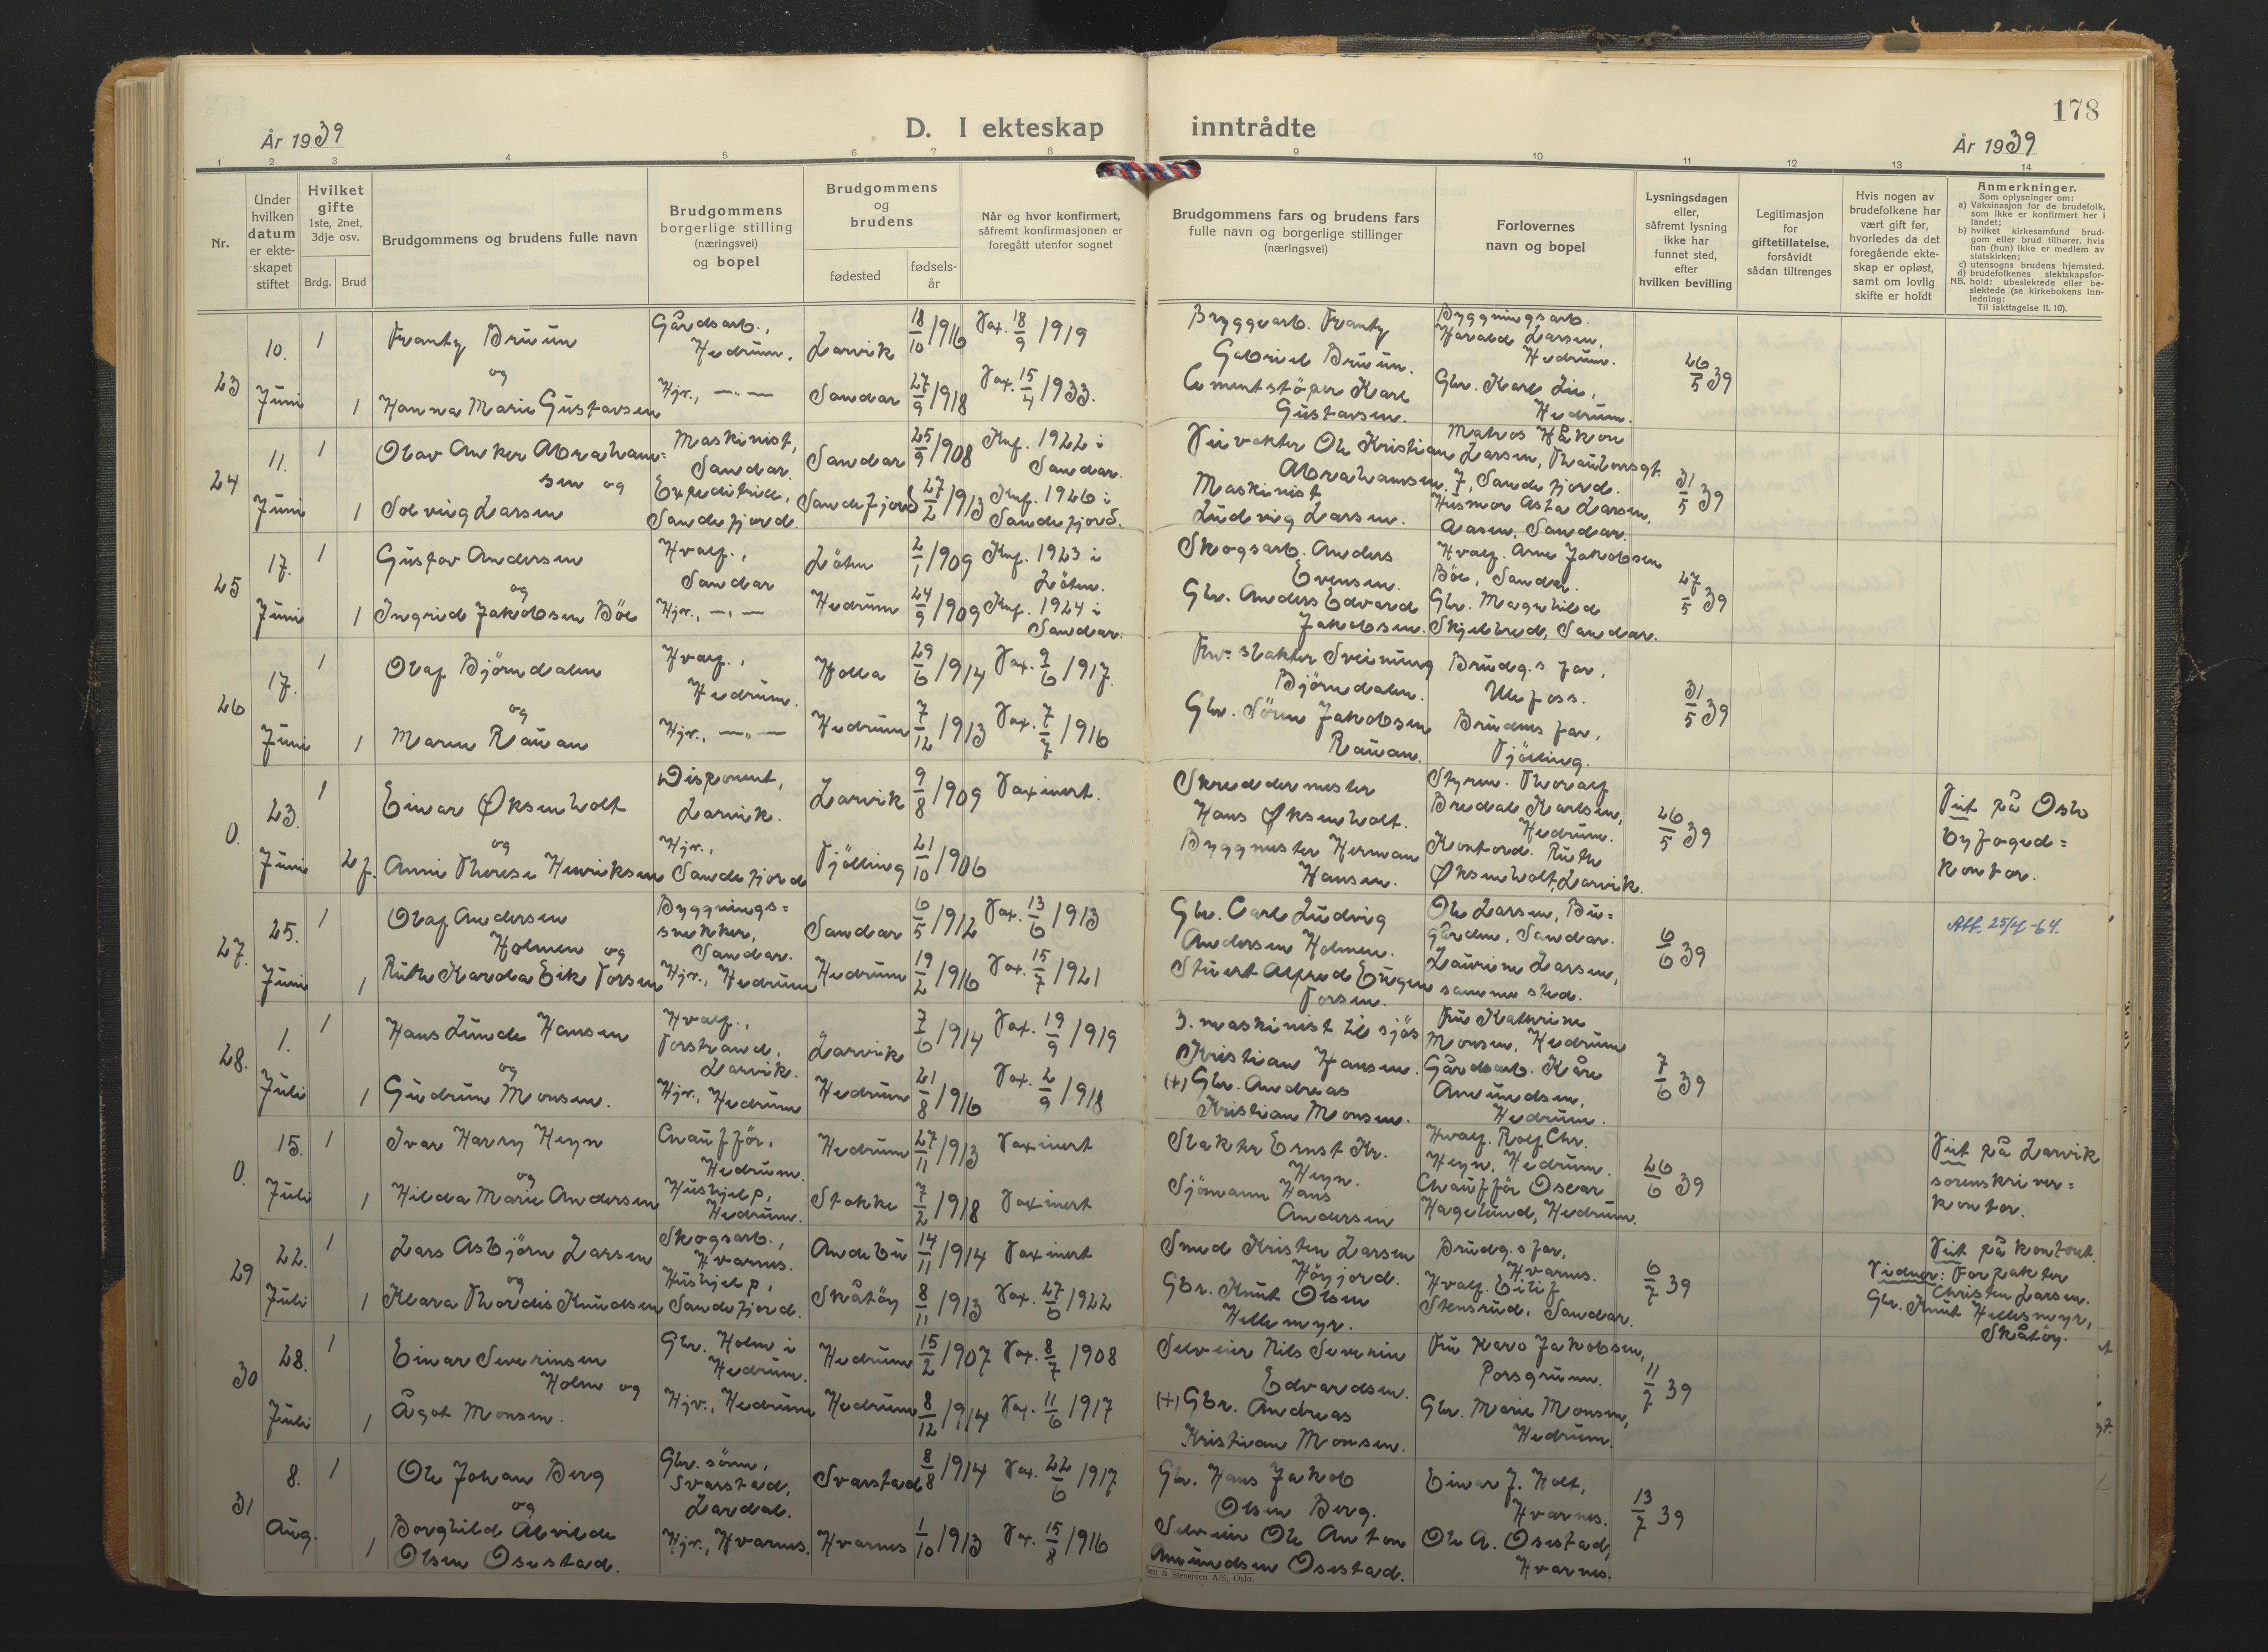 178
År 1939
D. I ekteskap inntrådte
År 1939
1 2 3 4 5 6 7 8 9 10 11 12 13 14
Nr.
Under hvilken datum er ekteskapet stiftet
Hvilket gifte
1ste, 2net, 3dje osv.
Brdg. Brud
Brudgommens og brudens fulle navn
Brudgommens borgerlige stilling (næringsvei) og bopel
Brudgommens og brudens
fødested
fødselsår
Når og hvor konfirmert, såfremt konfirmasjonen er foregått utenfor sognet
Brudgommens fars og brudens fars fulle navn og borgerlige stillinger (næringsvei)
Forlovernes navn og bopel
Lysningsdagen eller, såfremt lysning ikke har funnet sted, efter hvilken bevilling
Legitimasjon for giftetillatelse, forsåvidt sådan tiltrenges
Hvis nogen av brudefolkene har vært gift før, hvorledes da det foregående ekteskap er opløst, samt om lovlig skifte er holdt
Anmerkninger.
Som oplysninger om:
a) Vaksinasjon for de brudefolk, som ikke er konfirmert her i landet;
b) hvilket kirkesamfund brudgom eller brud tilhører, hvis han (hun) ikke er medlem av statskirken;
c) utensogns brudens hjemsted.
d) brudefolkenes slektskapsforhold: ubeslektede eller beslektede (se kirkebokens innledning:
NB. Til iakttagelse II. 10).
23 10. Juni 1 Frantz Bruun Gårdsarb., Hedrum. Larvik 18/10 1916 Vax. 18/9 1919 Bryggearb. Frantz Gabriel Bruun. Bygningsarb. Harald Larsen, Hedrum. 26/5 39
og
1 Hanna Marie Gustavsen Hjv., —"— Sandar 27/9 1918 Vax. 15/4 1933. Cementstøper Karl Gustavsen. Gbr. Karl Lie, Hedrum.
24 11. Juni 1 Olav Anker Abrahamsen og Maskinist, Sandar. Sandar 25/9 1908 Knf. 1922 i Sandar. Ole Kristian Abrahamsen. Matros Håkon Larsen, 7, Sandefjord. 31/5 39
1 Solveig Larsen Expeditrice, Sandefjord. Sandefjord 27/2 1913 Knf. 1926 i Sandefjord. Maskinist Ludvig Larsen. Husmor Asta Larsen, Aasen, Sandar.
25 17. Juni 1 Gustav Andersen Hvalf., Sandar Löten 2/1 1909 Knf. 1923 i Löten. Skogsarb. Anders Evensen. Hvalf. Arne Jakobsen Böe, Sandar. 27/5 39
og
1 Ingrid Jakobsen Böe Hjv., —"— Hedrum 24/9 1909 Knf. 1924 i Sandar. Gbr. Anders Edvard Jakobsen. Gbr. Magnhild Skjelbred, Sandar.
26 17. Juni 1 Olaf Björndalen Hvalf., Hedrum. Holla 29/6 1914 Vax. 9/6 1917. Sveinung Björndalen. Brudg.s far, Ulefoss. 31/5 39
og
1 Maren Rauan Hjv., —"— Hedrum 7/12 1913 Vax. 7/7 1916 Gbr. Sören Jakobsen Rauan. Brudens far, Tjölling.
0. 23. Juni 1 Einar Øksenholt Disponent, Larvik. Larvik 9/8 1909 Vaxinert. Skreddermester Hans Øksenholt. Styrm. Thoralf Bredal Karlsen, Hedrum. 26/5 39 Viet på Oslo byfogedkontor.
og
2 f. Anni Therese Henriksen Hjv., Sandefjord Tjölling 21/10 1906 Byggmester Herman Hansen. Kontord. Ruth Øksenholt, Larvik.
27. 25. Juni 1 Olaf Andersen Holmen og Bygningssnekker, Sandar. Sandar 6/5 1912 Vax. 13/6 1913 Gbr. Carl Ludvig Andersen Holmen. Ole Larsen, Bugården, Sandar. 6/6 39 Att. 25/4-64.
1 Ruth Harda Eik Torsen Hjv., Hedrum Hedrum 19/2 1916 Vax. 15/7 1921 Stuert Alfred Eugen Torsen. Laurine Larsen, samme sted.
28. 1. Juli 1 Hans Lunde Hansen Hvalf., Torstrand, Larvik. Larvik 7/6 1914 Vax. 19/9 1919 3. maskinist til sjøs Kristian Hansen. Fru Kathrine Monsen, Hedrum 7/6 39
og
1 Gudrun Monsen. Hjv., Hedrum Hedrum 21/8 1916 Vax. 2/9 1918 (+) Gbr. Andreas Kristian Monsen. Gårdsarb. Kåre Amundsen, Hedrum.
0. 15. Juli 1 Ivar Harry Heyn Chaufför, Hedrum. Hedrum 27/11 1913 Vaxinert Slakter Ernst Kr. Heyn. Hvalf. Rolf Chr. Heyn, Hedrum. 26/6 39 Viet på Larvik sorenskriverkontor.
og
1 Hilda Marie Andersen Hushjelp, Hedrum. Stokke 7/2 1918 Vaxinert Sjömann Hans Andersen Chaufför Oscar Hagelund, Hedrum.
29 22. Juli 1 Lars Asbjörn Larsen Skogsarb., Hvarnes. Andebu 14/11 1914 Vaxinert Smed Kristen Larsen Höyjord. Brudg.s far, Hvarnes. 6/7 39 Viet på kontoret. Vidner: Forpakter Christen Larsen. Gbr. Knut Hellesmyr, Skåtöy.
og
1 Klara Thordis Knudsen Hushjelp, Sandefjord. Skåtöy 8/11 1913 Vax. 27/6 1922 Gbr. Knut Olsen Hellemyr. Hvalf. Eilif Stensrud, Sandar.
30 28. Juli 1 Einar Severinsen Holm og Gbr. Holm i Hedrum. Hedrum 15/2 1907 Vax. 8/7 1908 Selveier Nils Severin Edvardsen. Fru Karo Jakobsen, Porsgrunn. 11/7 39
1 Ågot Monsen. Hjv., Hedrum Hedrum 8/12 1914 Vax. 11/6 1917 (+) Gbr. Andreas Kristian Monsen. Gbr. Marie Monsen, Hedrum.
31 8. Aug. 1 Ole Johan Berg Gbr. sönn, Svarstad, Lardal. Svarstad 8/8 1914 Vax. 22/6 1917 Gbr. Hans Jakob Olsen Berg. Einar J. Holt, Hvarnes. 13/7 39
og
1 Borghild Alvilde Olsen Osestad. Hjv., Hvarnes. Hvarnes 1/10 1913 Vax. 15/8 1916 Selveier Ole Anton Amundsen Osestad. Ole A. Osestad, Hvarnes.
& Stenersen A/S, Oslo.